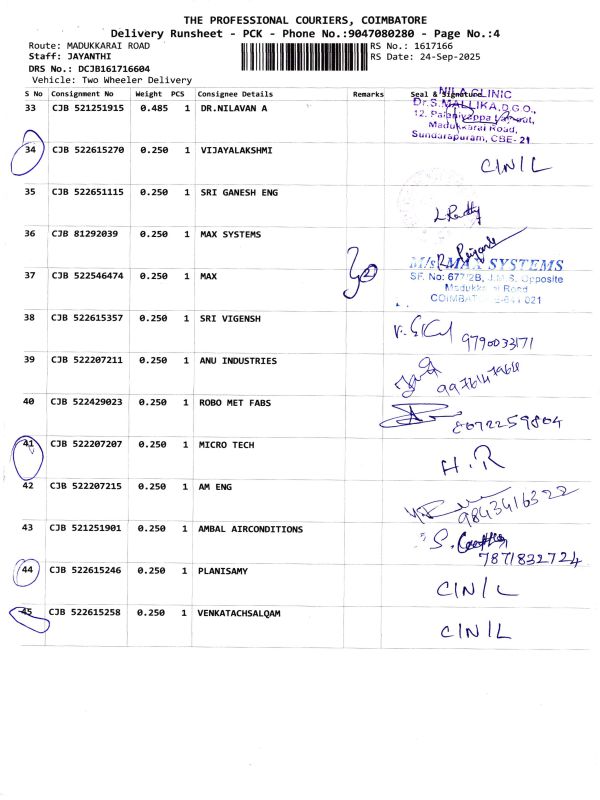 THE PROFESSIONAL COURIERS, COIMBATORE
Delivery Runsheet - PCK - Phone No.:9047080280 - Page No.:4
Route: MADUKKARAI ROAD RS No.: 1617166
Staff: JAYANTHI RS Date: 24-Sep-2025
DRS No.: DCJB161716604
Vehicle: Two Wheeler Delivery
S No Consignment No Weight PCS Consignee Details Remarks Seal & Signature
NILA CLINIC
33 CJB 521251915 0.485 1 DR.NILAVAN A Dr.S.MALLIKA,D.G.O.,
12, Palaniyappa
Madukkarai Road,
Sundarapuram, CBE- 21
34 CJB 522615270 0.250 1 VIJAYALAKSHMI C/N/L
35 CJB 522651115 0.250 1 SRI GANESH ENG
36 CJB 81292039 0.250 1 MAX SYSTEMS
M/s MAX SYSTEMS
37 CJB 522546474 0.250 1 MAX 2 SF. No: 677/2B, J.M.S. Opposite
Madukkarai Road
38 CJB 522615357 0.250 1 SRI VIGENSH 9790033171
39 CJB 522207211 0.250 1 ANU INDUSTRIES
40 CJB 522429023 0.250 1 ROBO MET FABS 8072259804
41 CJB 522207207 0.250 1 MICRO TECH H.R
42 CJB 522207215 0.250 1 AM ENG 9843416322
43 CJB 521251901 0.250 1 AMBAL AIRCONDITIONS S.
7871832724
44 CJB 522615246 0.250 1 PLANISAMY C/N/L
45 CJB 522615258 0.250 1 VENKATACHSALQAM C/N/L